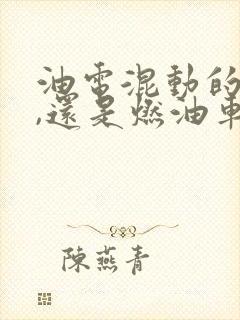 油電混動的
,還是燃油車
陳燕青